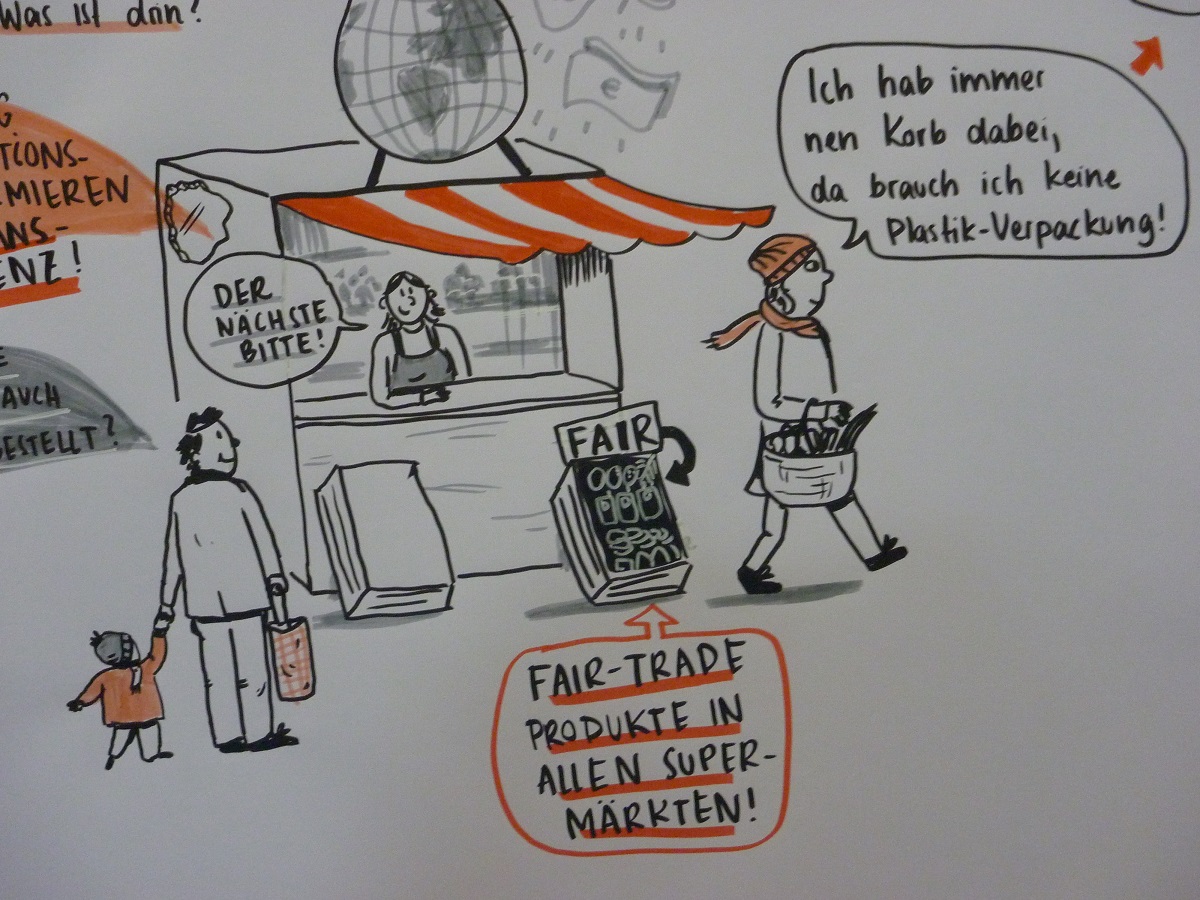 Was ist drin?
TIONS-
MIEREN
ANS-
ENZ!
AUCH
GESTELLT?
DER
NÄCHSTE
BITTE!
Ich hab immer
nen Korb dabei,
da brauch ich keine
Plastik-Verpackung!
€
FAIR
FAIR-TRADE
PRODUKTE IN
ALLEN SUPER-
MÄRKTEN!